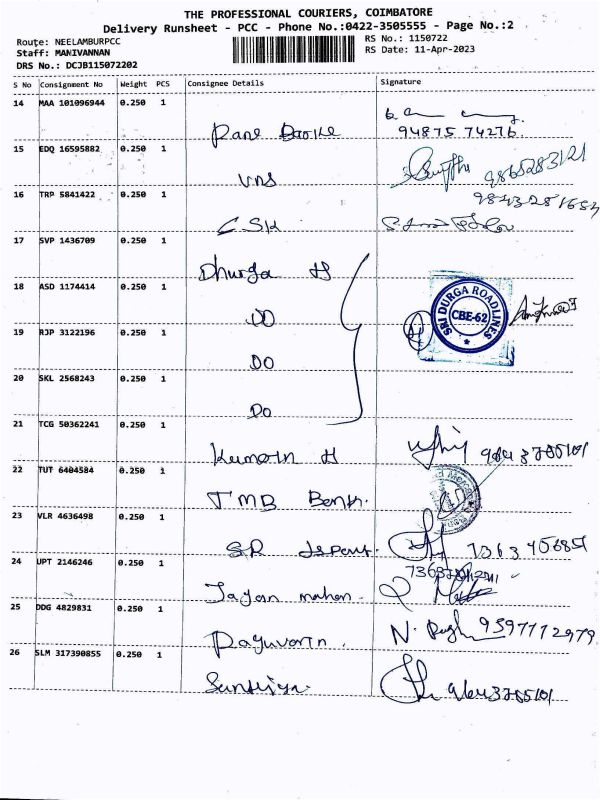 THE PROFESSIONAL COURIERS, COIMBATORE
Delivery Runsheet - PCC - Phone No.:0422-3505555 - Page No.:2
Route: NEELAMBURPCC RS No.: 1150722
Staff: MANIVANNAN RS Date: 11-Apr-2023
DRS No.: DCJB115072202
S No Consignment No Weight PCS Consignee Details Signature
14 MAA 101096944 0.250 1
94875 74276
15 EDQ 16595882 0.250 1
VNS 9865283121
16 TRP 5841422 0.250 1
CSK
17 SVP 1436709 0.250 1
Dhurga H
18 ASD 1174414 0.250 1
DO
SRI DURGA ROADLINES
CBE-62
19 RJP 3122196 0.250 1
DO
20 SKL 2568243 0.250 1
DO
21 TCG 50362241 0.250 1
Kumarn H
22 TUT 6404584 0.250 1
TMB Bank.
23 VLR 4636498 0.250 1
SR
24 UPT 2146246 0.250 1
Jagan mohan.
25 DDG 4829831 0.250 1
Raguvarn. N. 9597712979
26 SLM 317390855 0.250 1